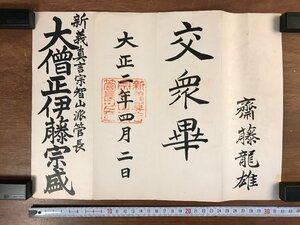 齋藤龍雄
交衆畢
大正二年四月二日
新義真言宗智山派管長
大僧正伊藤宗盛